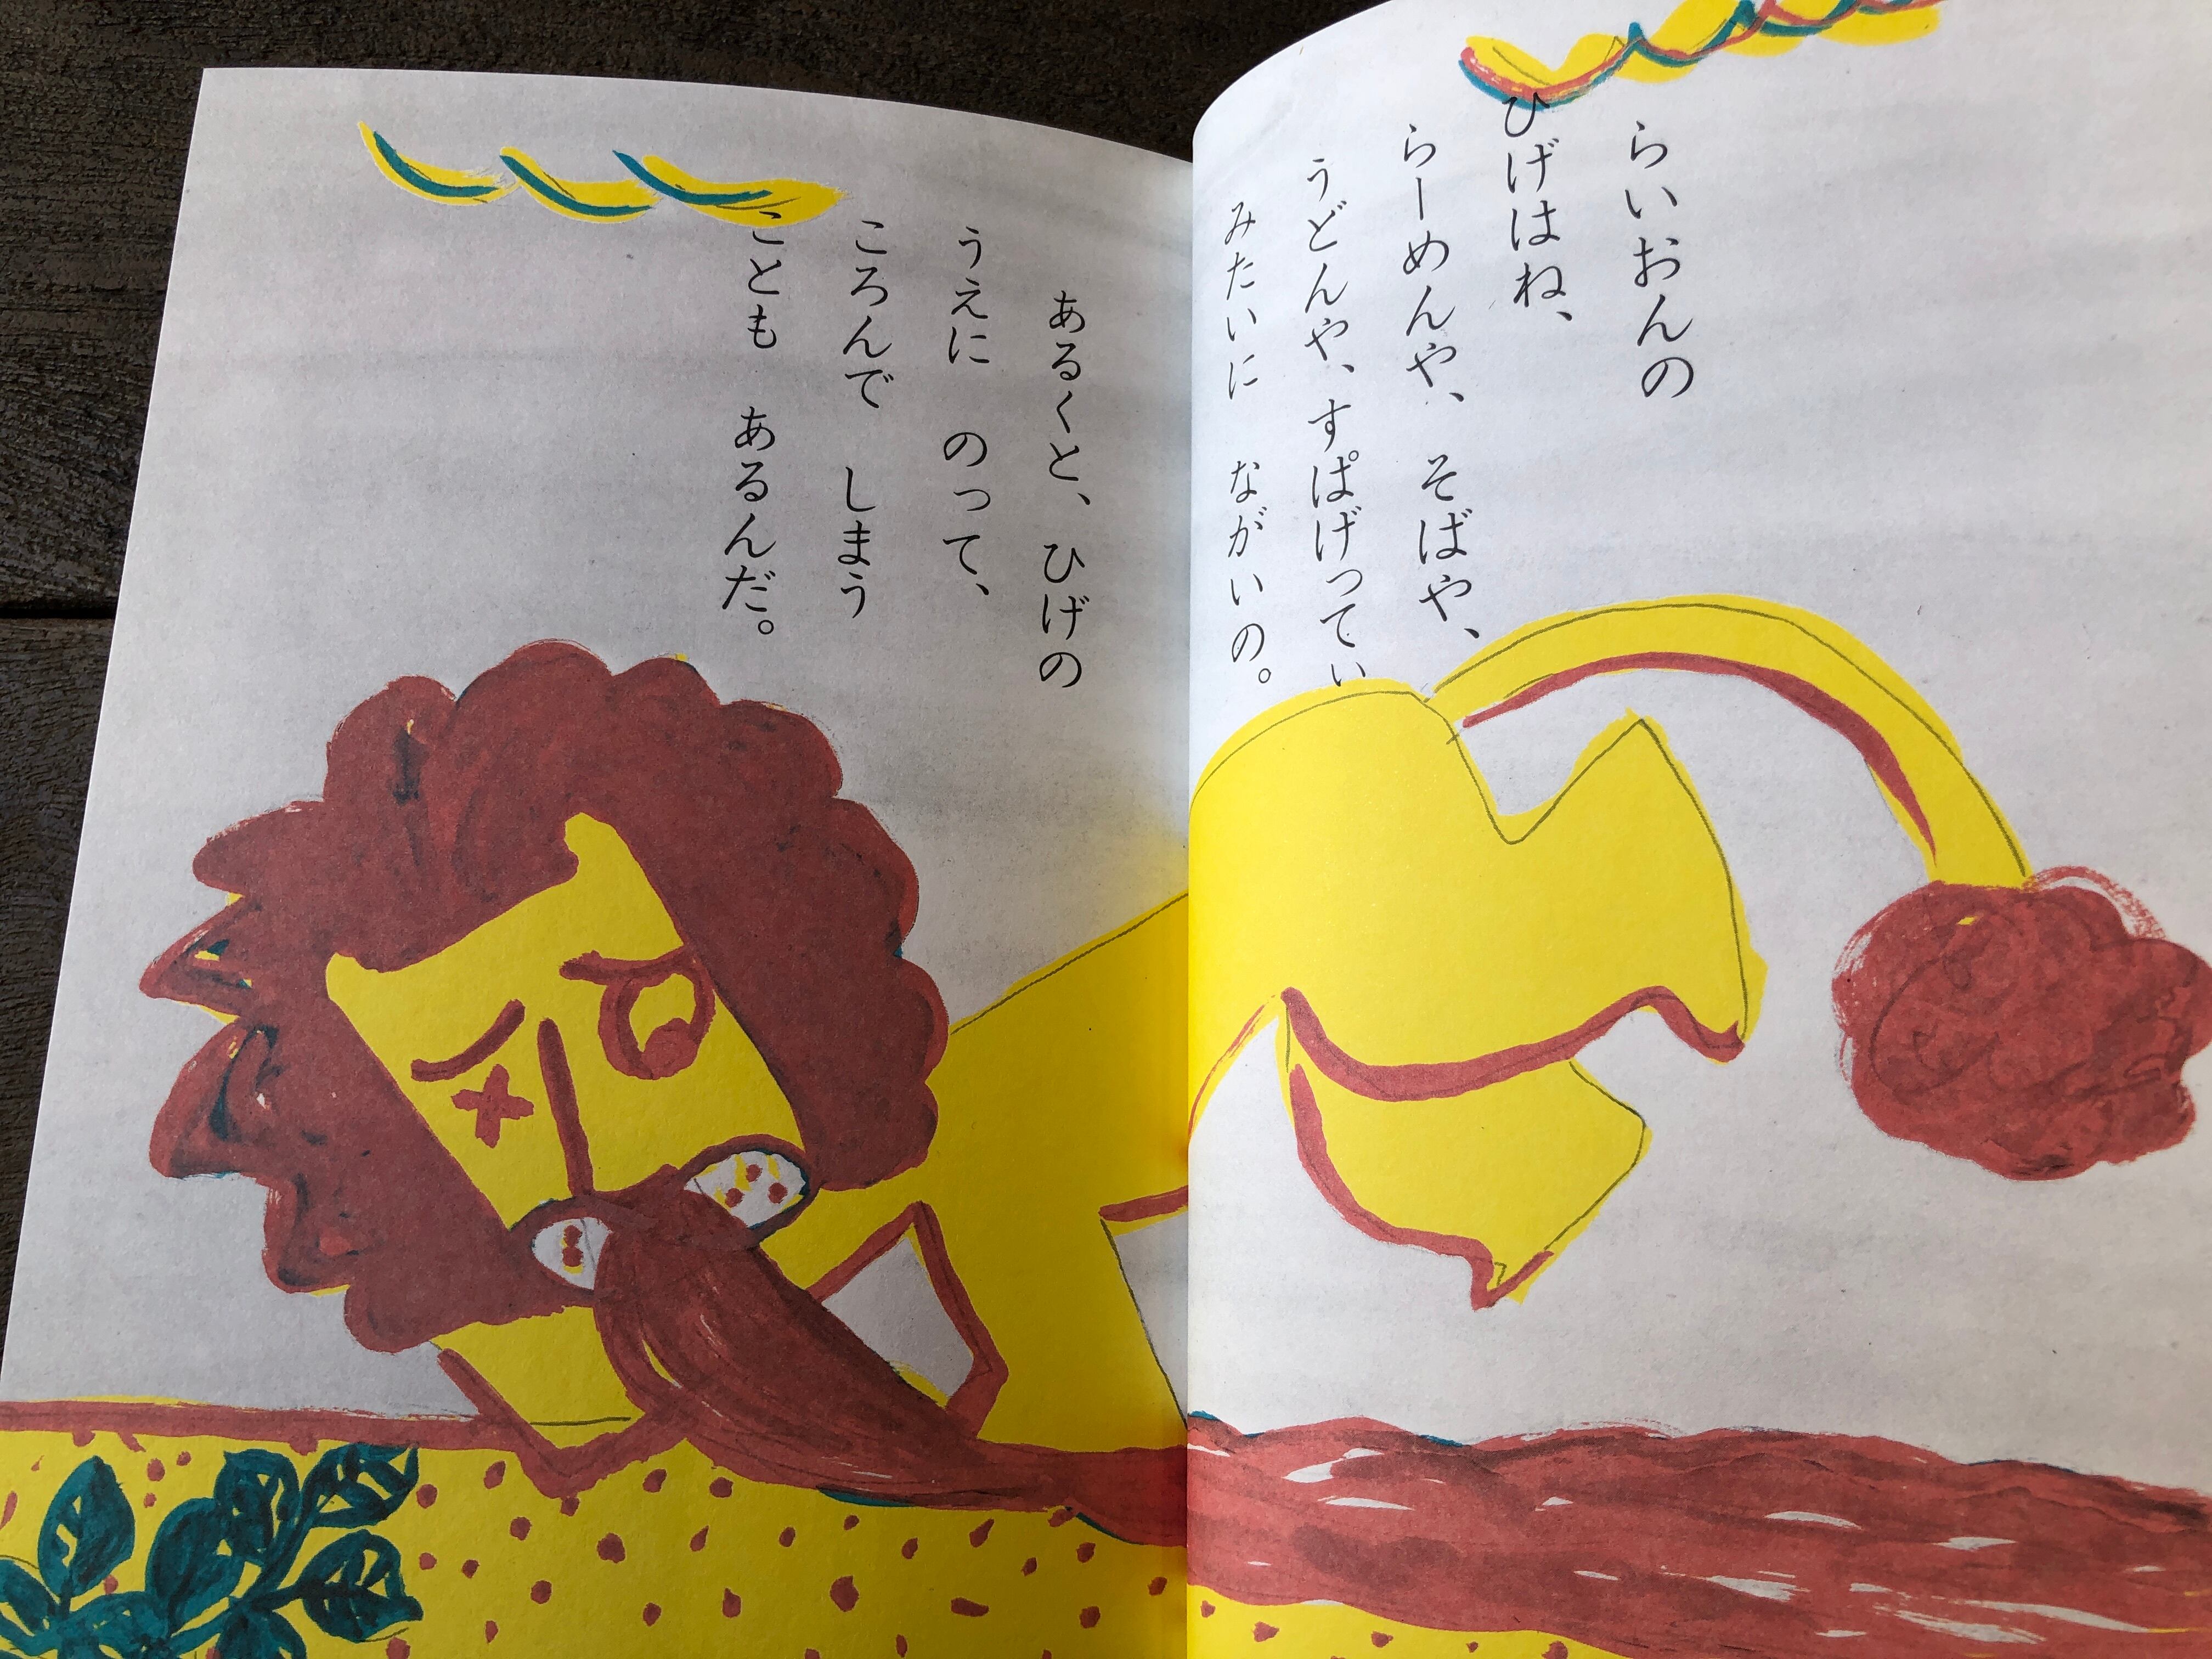 らいおんの
ひげはね、
らーめんや、 そばや、
うどんや、すぱげってぃ
みたいに ながいの。
あるくと、 ひげの
うえに のって、
ころんで しまう
ことも あるんだ。